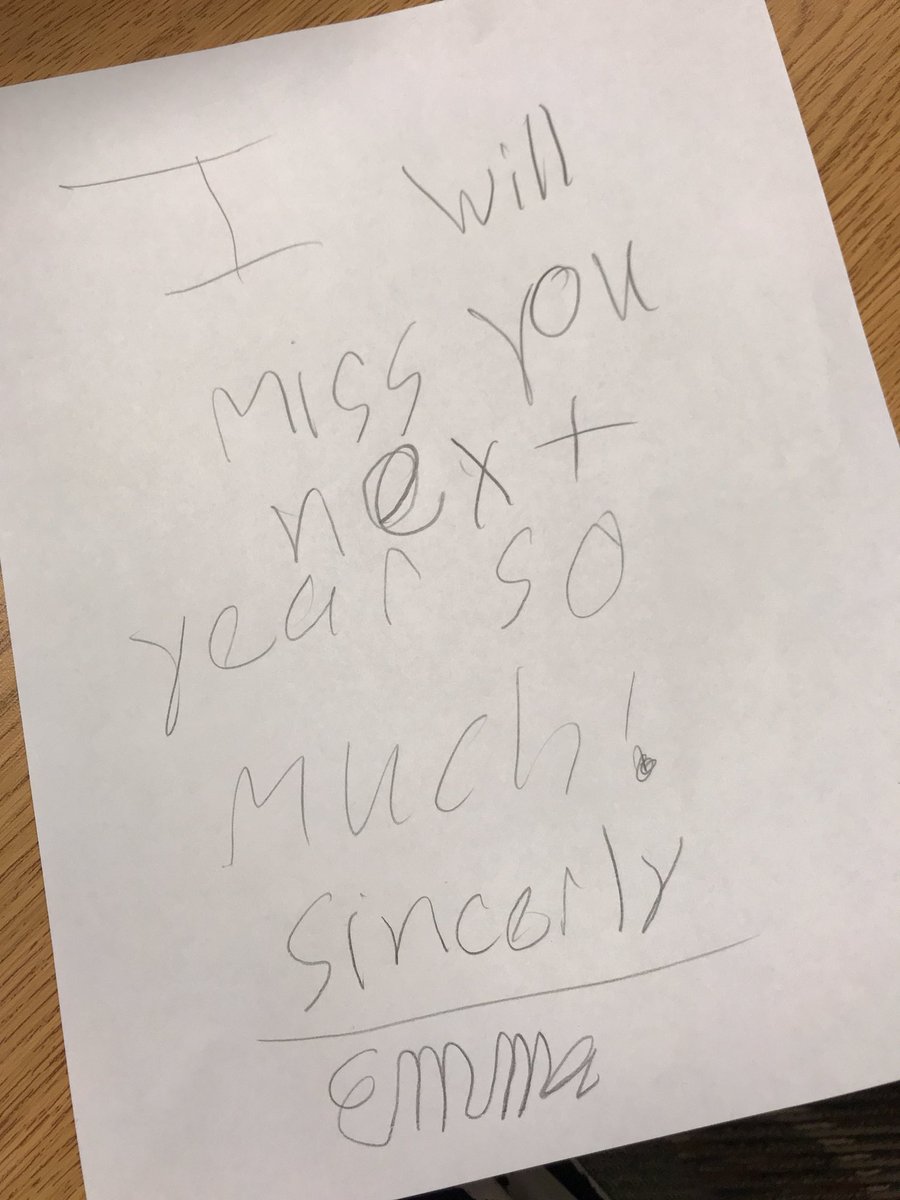 I will
miss you
next
year so
much!
sincerly
Emma